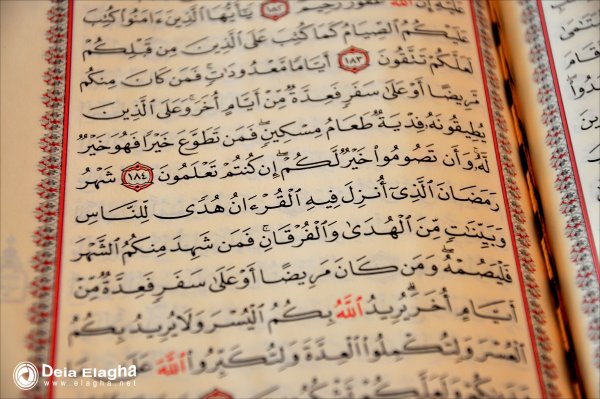 عَلَيْهِ إِنَّ اللَّهَ غَفُورٌ رَّحِيمٌ ١٨٢ يَٰٓأَيُّهَا الَّذِينَ ءَامَنُوا۟ كُتِبَ
عَلَيْكُمُ الصِّيَامُ كَمَا كُتِبَ عَلَى الَّذِينَ مِن قَبْلِكُمْ
لَعَلَّكُمْ تَتَّقُونَ ١٨٣ أَيَّامًا مَّعْدُودَاتٍ فَمَن كَانَ مِنكُم
مَّرِيضًا أَوْ عَلَىٰ سَفَرٍ فَعِدَّةٌ مِّنْ أَيَّامٍ أُخَرَ وَعَلَى الَّذِينَ
يُطِيقُونَهُۥ فِدْيَةٌ طَعَامُ مِسْكِينٍ فَمَن تَطَوَّعَ خَيْرًا فَهُوَ خَيْرٌ
لَّهُۥ وَأَن تَصُومُوا۟ خَيْرٌ لَّكُمْ إِن كُنتُمْ تَعْلَمُونَ ١٨٤ شَهْرُ
رَمَضَانَ الَّذِىٓ أُنزِلَ فِيهِ الْقُرْءَانُ هُدًى لِّلنَّاسِ
وَبَيِّنَٰتٍ مِّنَ الْهُدَىٰ وَالْفُرْقَانِ فَمَن شَهِدَ مِنكُمُ الشَّهْرَ
فَلْيَصُمْهُ وَمَن كَانَ مَرِيضًا أَوْ عَلَىٰ سَفَرٍ فَعِدَّةٌ مِّنْ
أَيَّامٍ أُخَرَ يُرِيدُ اللَّهُ بِكُمُ الْيُسْرَ وَلَا يُرِيدُ بِكُمُ
الْعُسْرَ وَلِتُكْمِلُوا۟ الْعِدَّةَ وَلِتُكَبِّرُوا۟ اللَّهَ عَلَىٰ مَا
Deia Elagha
www.elagha.net